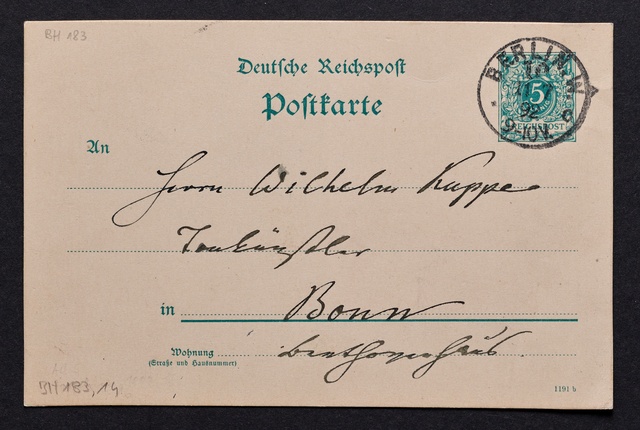 BH 183
Deutsche Reichspost
Postkarte
BERLIN W
92
9-10V.
5
REICHSPOST
An
Herrn Wilhelm Kuppe
Tonkünstler
in Bonn
Wohnung Beethovenhaus.
(Straße und Hausnummer)
BH 183,14
1191 b